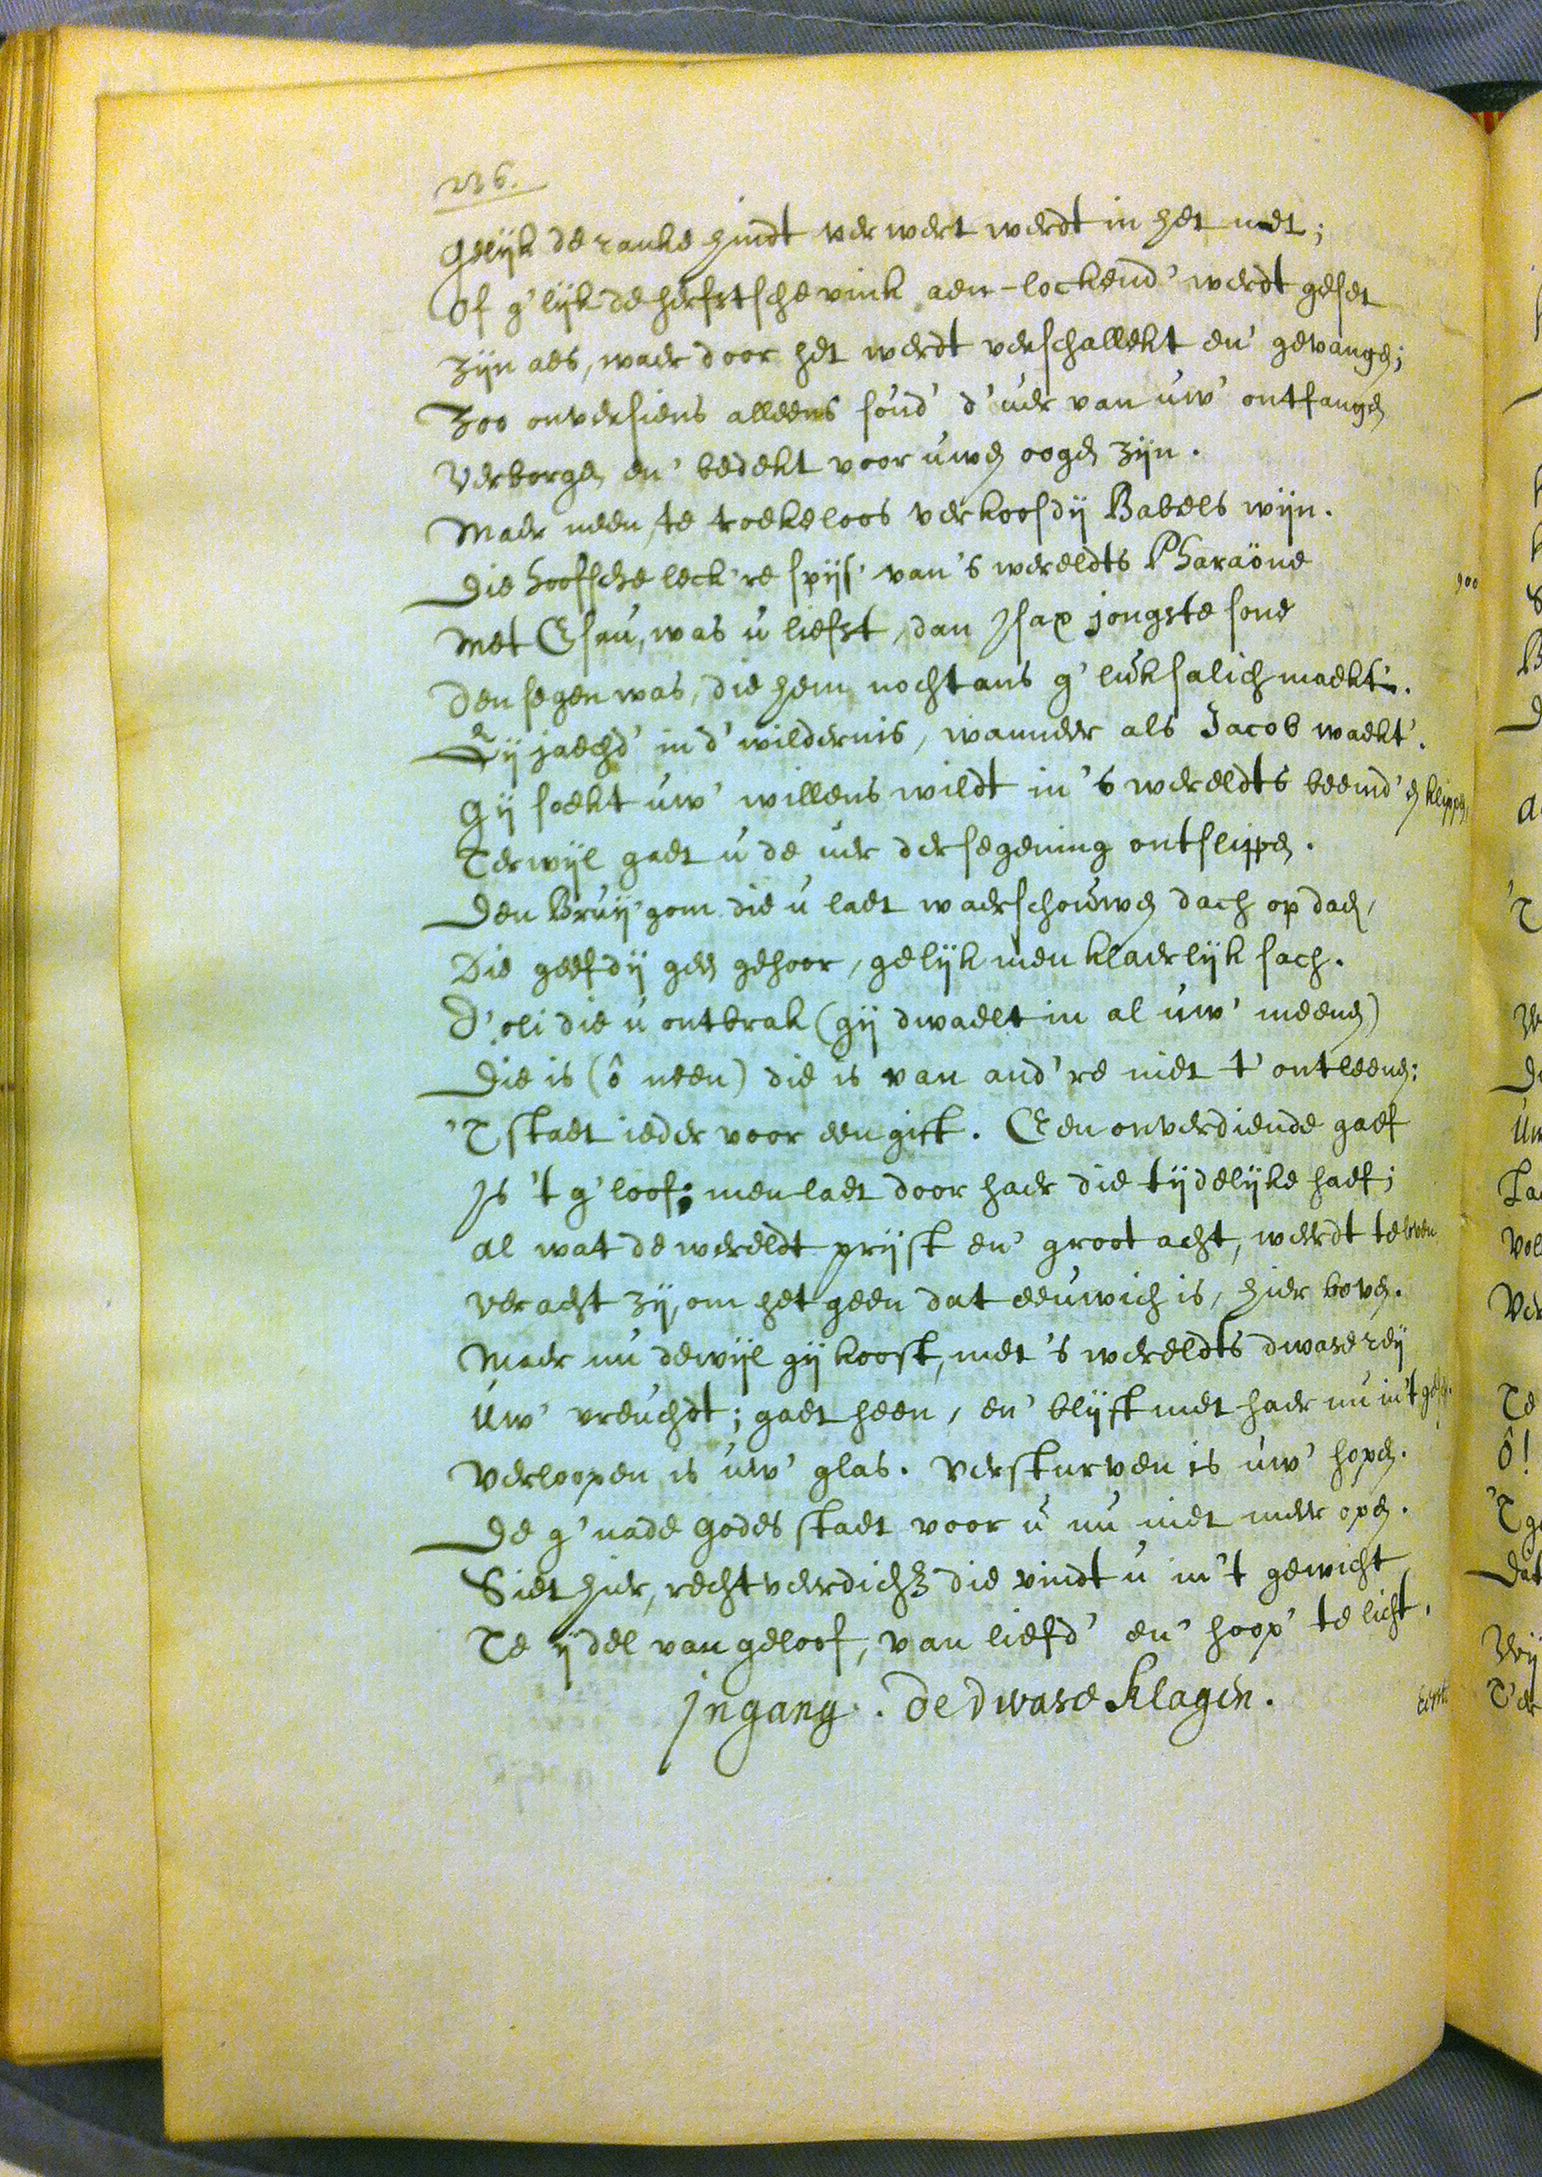 236.
Gelijk de ranke hindt verwert werdt in het net;
Of g'lijk de herfstsche vink aen-lockend' werdt geset
Zijn aes, waer door het werdt verschallekt en' gevangen;
Zoo onversiens alleens soud' d'uer van uw' ontfangen
Verborgen en' bedekt voor uwen oogen zijn.
Maer neen, te roekeloos verkoosdij Babels wijn.
Die hoofsche leck're spijs' van 's wereldts Pharaöne
Met Esau, was u liefst, dan Isax jongste sone
Den segen was, die hem nochtans g'luksalich maekt'.
Gij jaechd' in d'wildernis, wanneer als Jacob waekt'.
Gij soekt uw' willens wildt in 's wereldts beemd' en klippen,
Terwijl gaet u de uer der segening ontslippen.
Den Bruij'gom die u laet waerschouwen dach op dach,
Die geefdij geen gehoor, gelijk men klaerlijk sach.
D'oli die u ontbrak (gij dwaelt in al uw' meenen)
Die is (ô neen) die is van and're niet t'ontleenen:
'T staet ieder voor een gift. Een onverdiende gaef
Is 't g'loof; men laet door haer die tijdelijke haef;
Al wat de wereldt prijst en' groot acht, werdt te loven
Veracht zij, om het geen dat eeuwich is, hier boven.
Maer nu dewijl gij koost, met 's wereldts dwase rij
Uw' vreuchdt; gaet heen, en' blijft met haer nu in't
Verloopen is uw' glas. Versturven is uw' hopen.
De g'nade Godes staet voor u nu niet meer open.
Siet hier, rechtveerdich die vindt u in't gewicht
Te ij'del van geloof, van liefd' en' hoop' te licht.
Ingang. De dwase klagen.
900